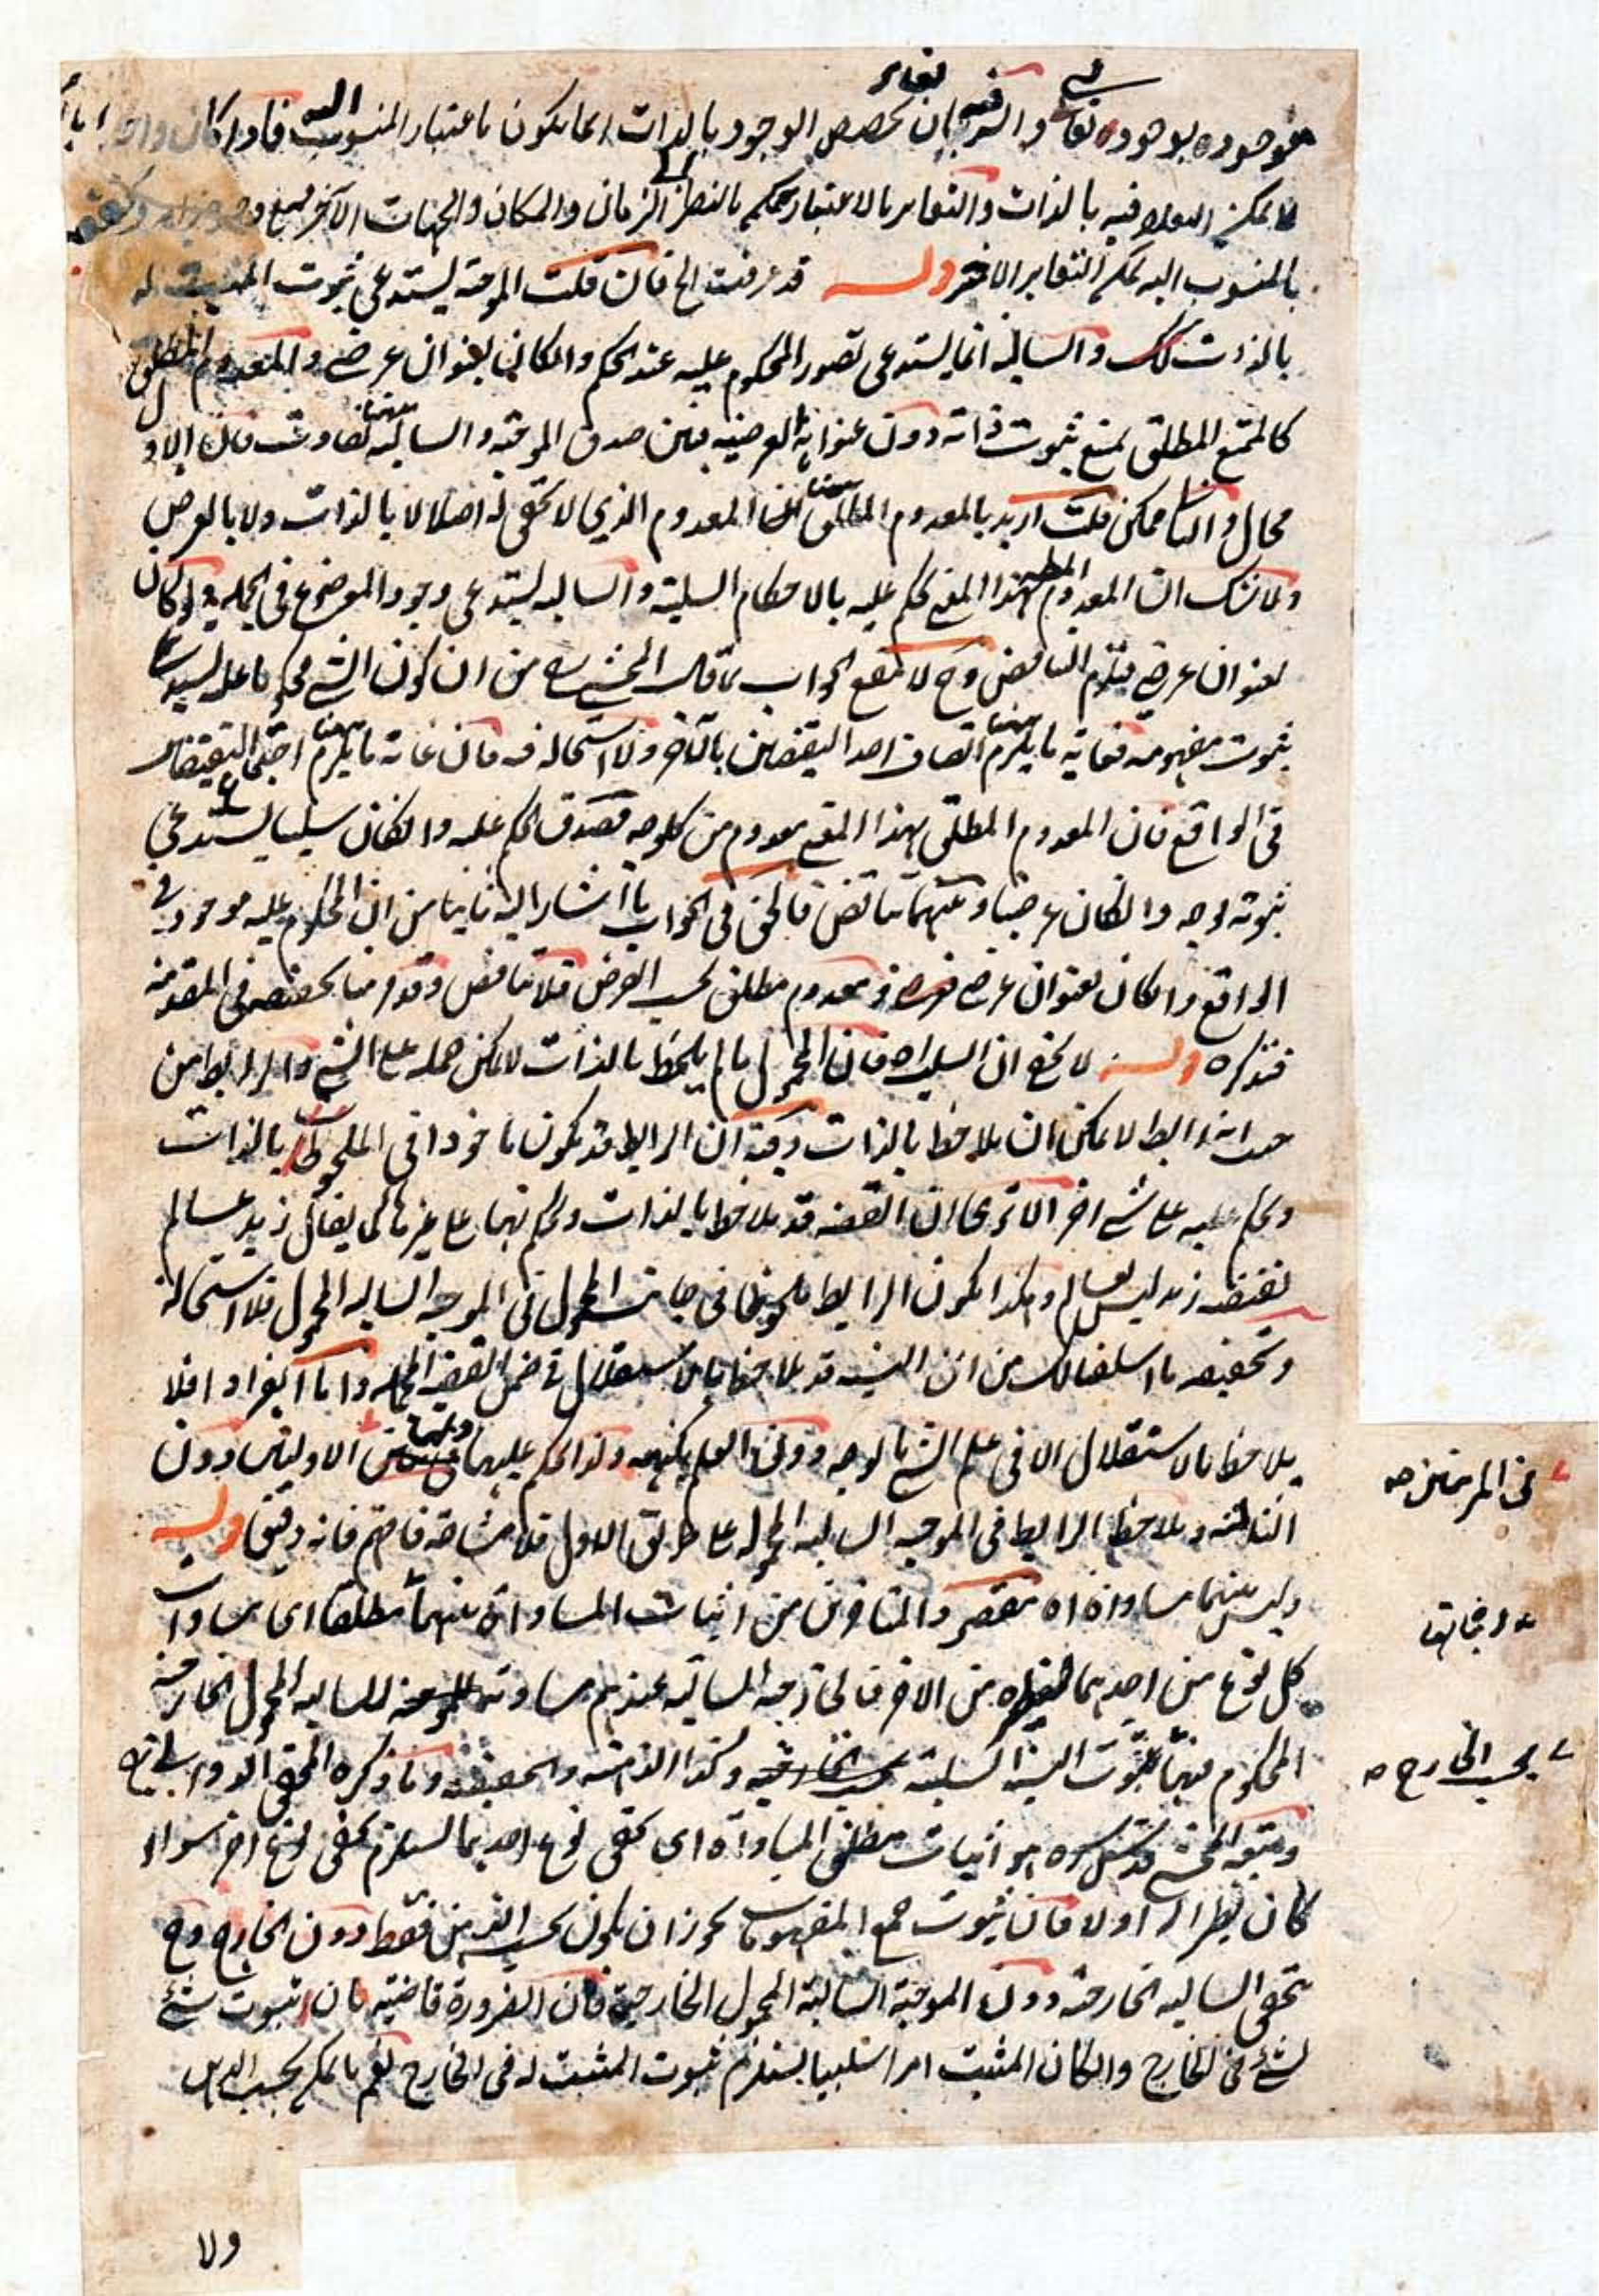 موجودة بوجوده تعالى والسر فيه ان تحصص الوجود بالذات انما يكون باعتبار المنسوب اليه فاذا كان واحدا
فلا يمكن التعدد فيه بالذات والتغاير بالاعتبار كحكم بالنظر الى الزمان والمكان والجهات الآخر
بالمنسوب اليه كحكم التغاير الآخر قوله قد عرفت الخ فان قلت الموجبة يستدعى ثبوت المثبت له
بالذات كك والسالبة انما يستدعى تصور المحكوم عليه عند الحكم وان كان بعنوان عرضى والمعدوم المطلق
كالممتنع المطلق يمتنع ثبوت ذاته دون عنوانه العرضية فبين صدق الموجبة والسالبة ههنا تفاوت فان الاول
محال والثانى ممكن قلت اريد بالمعدوم المطلق ههنا المعدوم الذي لا تحقق له اصلا لا بالذات ولا بالعرض
ولا شك ان المعدوم المطلق بهذا المعنى يحكم عليه بالاحكام السلبية والسالبة يستدعى وجود الموضوع فى الجملة ولو كان
بعنوان عرضى فيلزم التناقض وح لا ينفع الجواب بما قال المحشى من ان كون الشى محكوما عليه يستدعى
ثبوت مفهومه فغاية ما يلزم ههنا اتصاف احد النقيضين بالآخر ولا استحالة فيه فان غاية ما يلزم ههنا اجتماع النقيضين
فى الواقع فان المعدوم المطلق بهذا المعنى معدوم من كل وجه فصدق الحكم عليه وان كان سلبيا يستدعى
ثبوته بوجه وان كان عرضيا وبينهما تناقض فالحق فى الجواب ما اشار اليه ثانيا من ان المحكوم عليه موجود فى
الواقع وان كان بعنوان عرضى ومعدوم مطلق بحسب الفرض فلا تناقض وقد مر منا تحقيقه فى المقدمة
فتذكره قوله لا يخفى ان السلب اه فان المحمول ما لم يلحظ بالذات لا يمكن حمله على الشى والرابط من
حيث انه رابط لا يمكن ان يلاحظ بالذات وفيه ان الرابط قد يكون ماخوذا فى الملحوظ بالذات
ويحكم عليه على شى آخر الا ترى ان القضية قد يلاحظ بالذات ويحكم بها على غيرها كما يقال زيد عالم
نقيضه زيد ليس بعالم وهكذا يكون الرابط ملحوظا فى جانب المحمول فى الموجبة السالبة المحمول فلا استحالة
وتحقيقه ما اسلفنا لك من ان النسبة قد يلاحظ بالاستقلال فى ضمن القضية المجملة واما انفرادا فلا
يلاحظ بالاستقلال الا فى علم الشى بالوجه دون العلم بكنهه ولذا يحكم عليها وبها الاوليتين دون
الثالثة ويلاحظ الرابط فى الموجبة السالبة المحمول على طريق الاول فلا مشاحة فافهم فانه دقيق قوله
وليس بينهما مساواة اه مقصود المتاخرين من اثبات المساواة بينهما مطلقا اى مساواة
كل نوع من احدهما لنظيره من الآخر فالخارجية السالبة عندهم مساوية للسالبة المحمول الخارجية
المحكوم فيها بثبوت النسبة السلبية وكذا الذهنية والحقيقية وما ذكره المحقق الدوانى
وتبعه المحشى قدس سره هو اثبات مطلق المساواة اى تحقق نوع احدهما يستلزم تحقق نوع اخر سواء
كان نظيرا له او لا فان ثبوت جميع المفهومات يجوز ان يكون بحسب الذهن فقط دون الخارج وح
تحقق السالبة الخارجية دون الموجبة السالبة المحمول الخارجية فان الضرورة قاضية بان ثبوت شئ
لشئ فى الخارج وان كان المثبت امرا سلبيا يستلزم ثبوت المثبت له فى الخارج نعم بالحكم بحسب
فى المرتبتين صح
بحسب الخارج صح
ولا